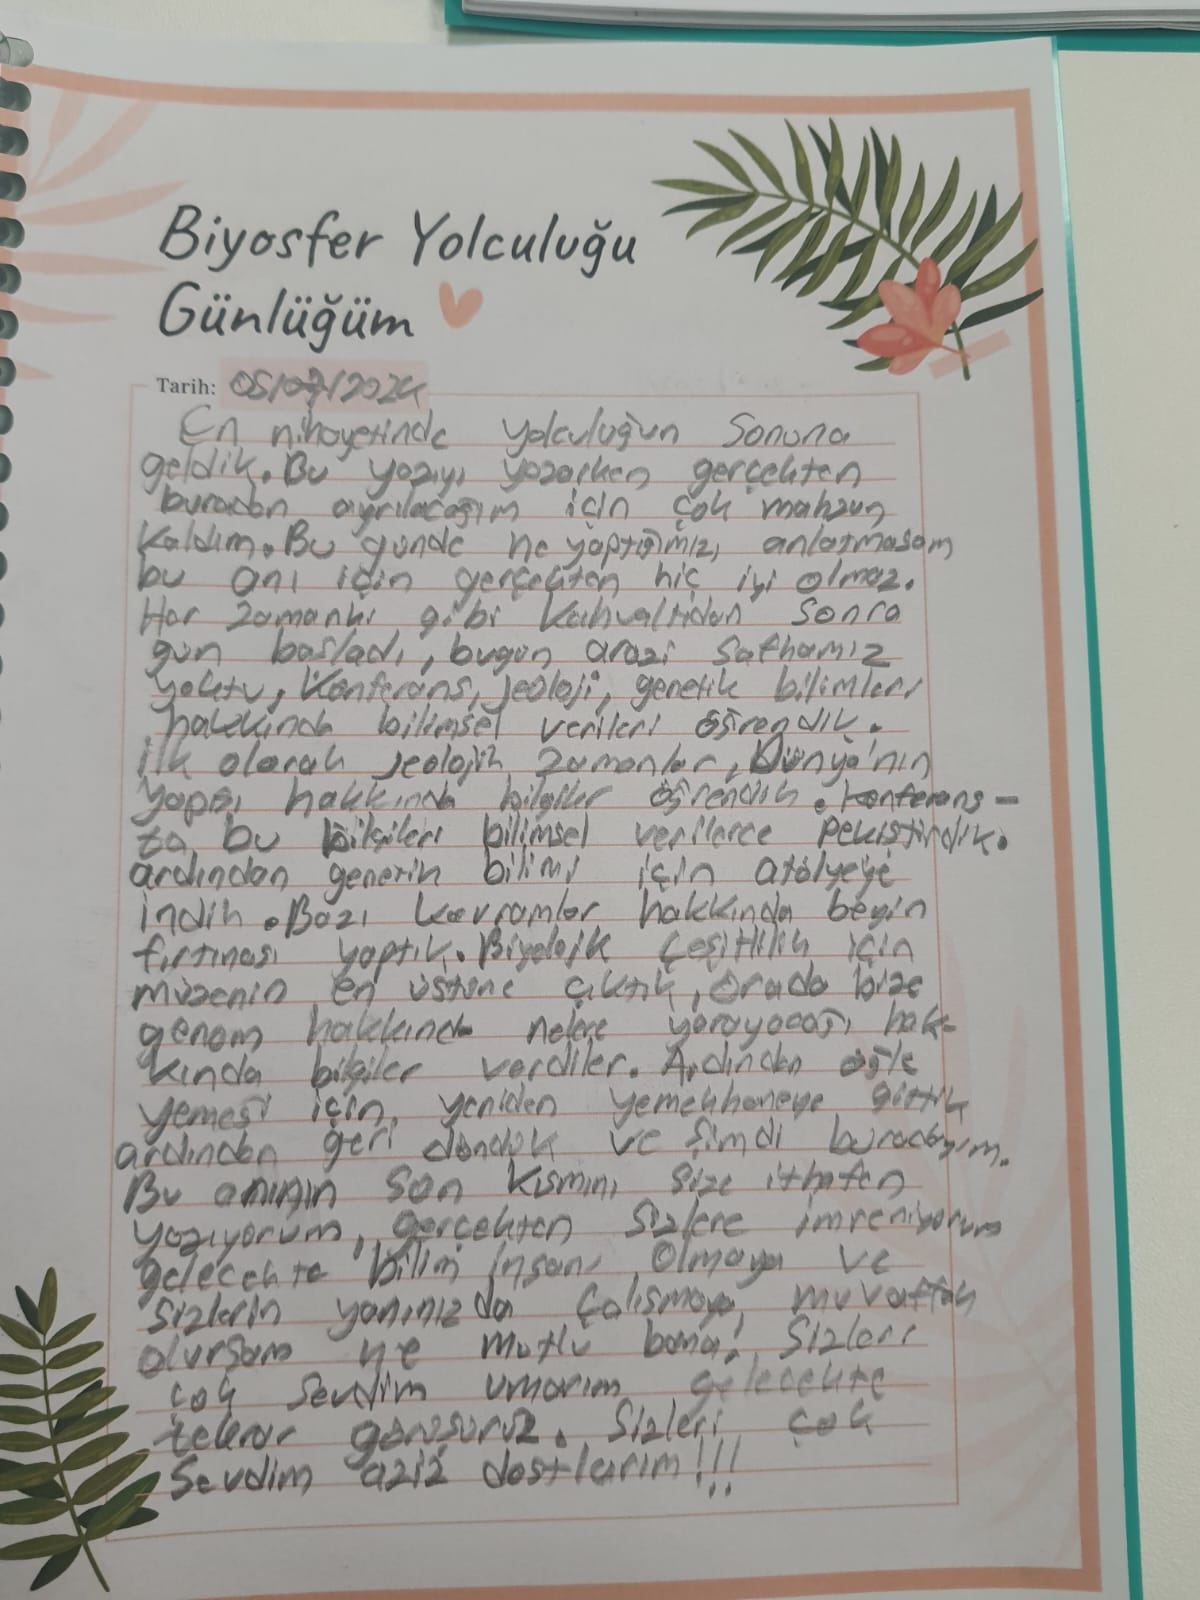 Biyosfer Yolculuğu
Günlüğüm
Tarih: 05/07/2024
En nihayetinde yolculuğun sonuna
geldik. Bu yazıyı yazarken gerçekten
buradan ayrılacağım için çok mahzun
kaldım. Bu günde ne yaptığımızı anlatmasam
bu anı için gerçekten hiç iyi olmaz.
Her zamanki gibi kahvaltıdan sonra
gün başladı, bugün arazi safhamız
yoktu, Konferans, jeoloji, genetik bilimleri
hakkında bilimsel verileri öğrendik.
ilk olarak jeolojik zamanlar, Dünya'nın
yapısı hakkında bilgiler öğrendik. Konferans-
ta bu bilgileri bilimsel verilerce pekiştirdik.
ardından genetik bilimi için atölyeye
indik. Bazı kavramlar hakkında beyin
fırtınası yaptık. Biyolojik çeşitlilik için
müzenin en üstüne çıktık, orada bize
genom hakkında nelere yarayacağı hak-
kında bilgiler verdiler. Ardından öğle
yemeği için yeniden yemekhaneye gittik
ardından geri döndük ve şimdi buradayım.
Bu anının son kısmını size ithafen
yazıyorum, gerçekten sizlere imreniyorum
gelecekte bilim insanı olmaya ve
sizlerin yanınızda çalışmaya, muvaffak
olursam ne mutlu bana! Sizleri
çok sevdim umarım gelecekte
tekrar görüşürüz. Sizleri çok
Sevdim aziz dostlarım!!!